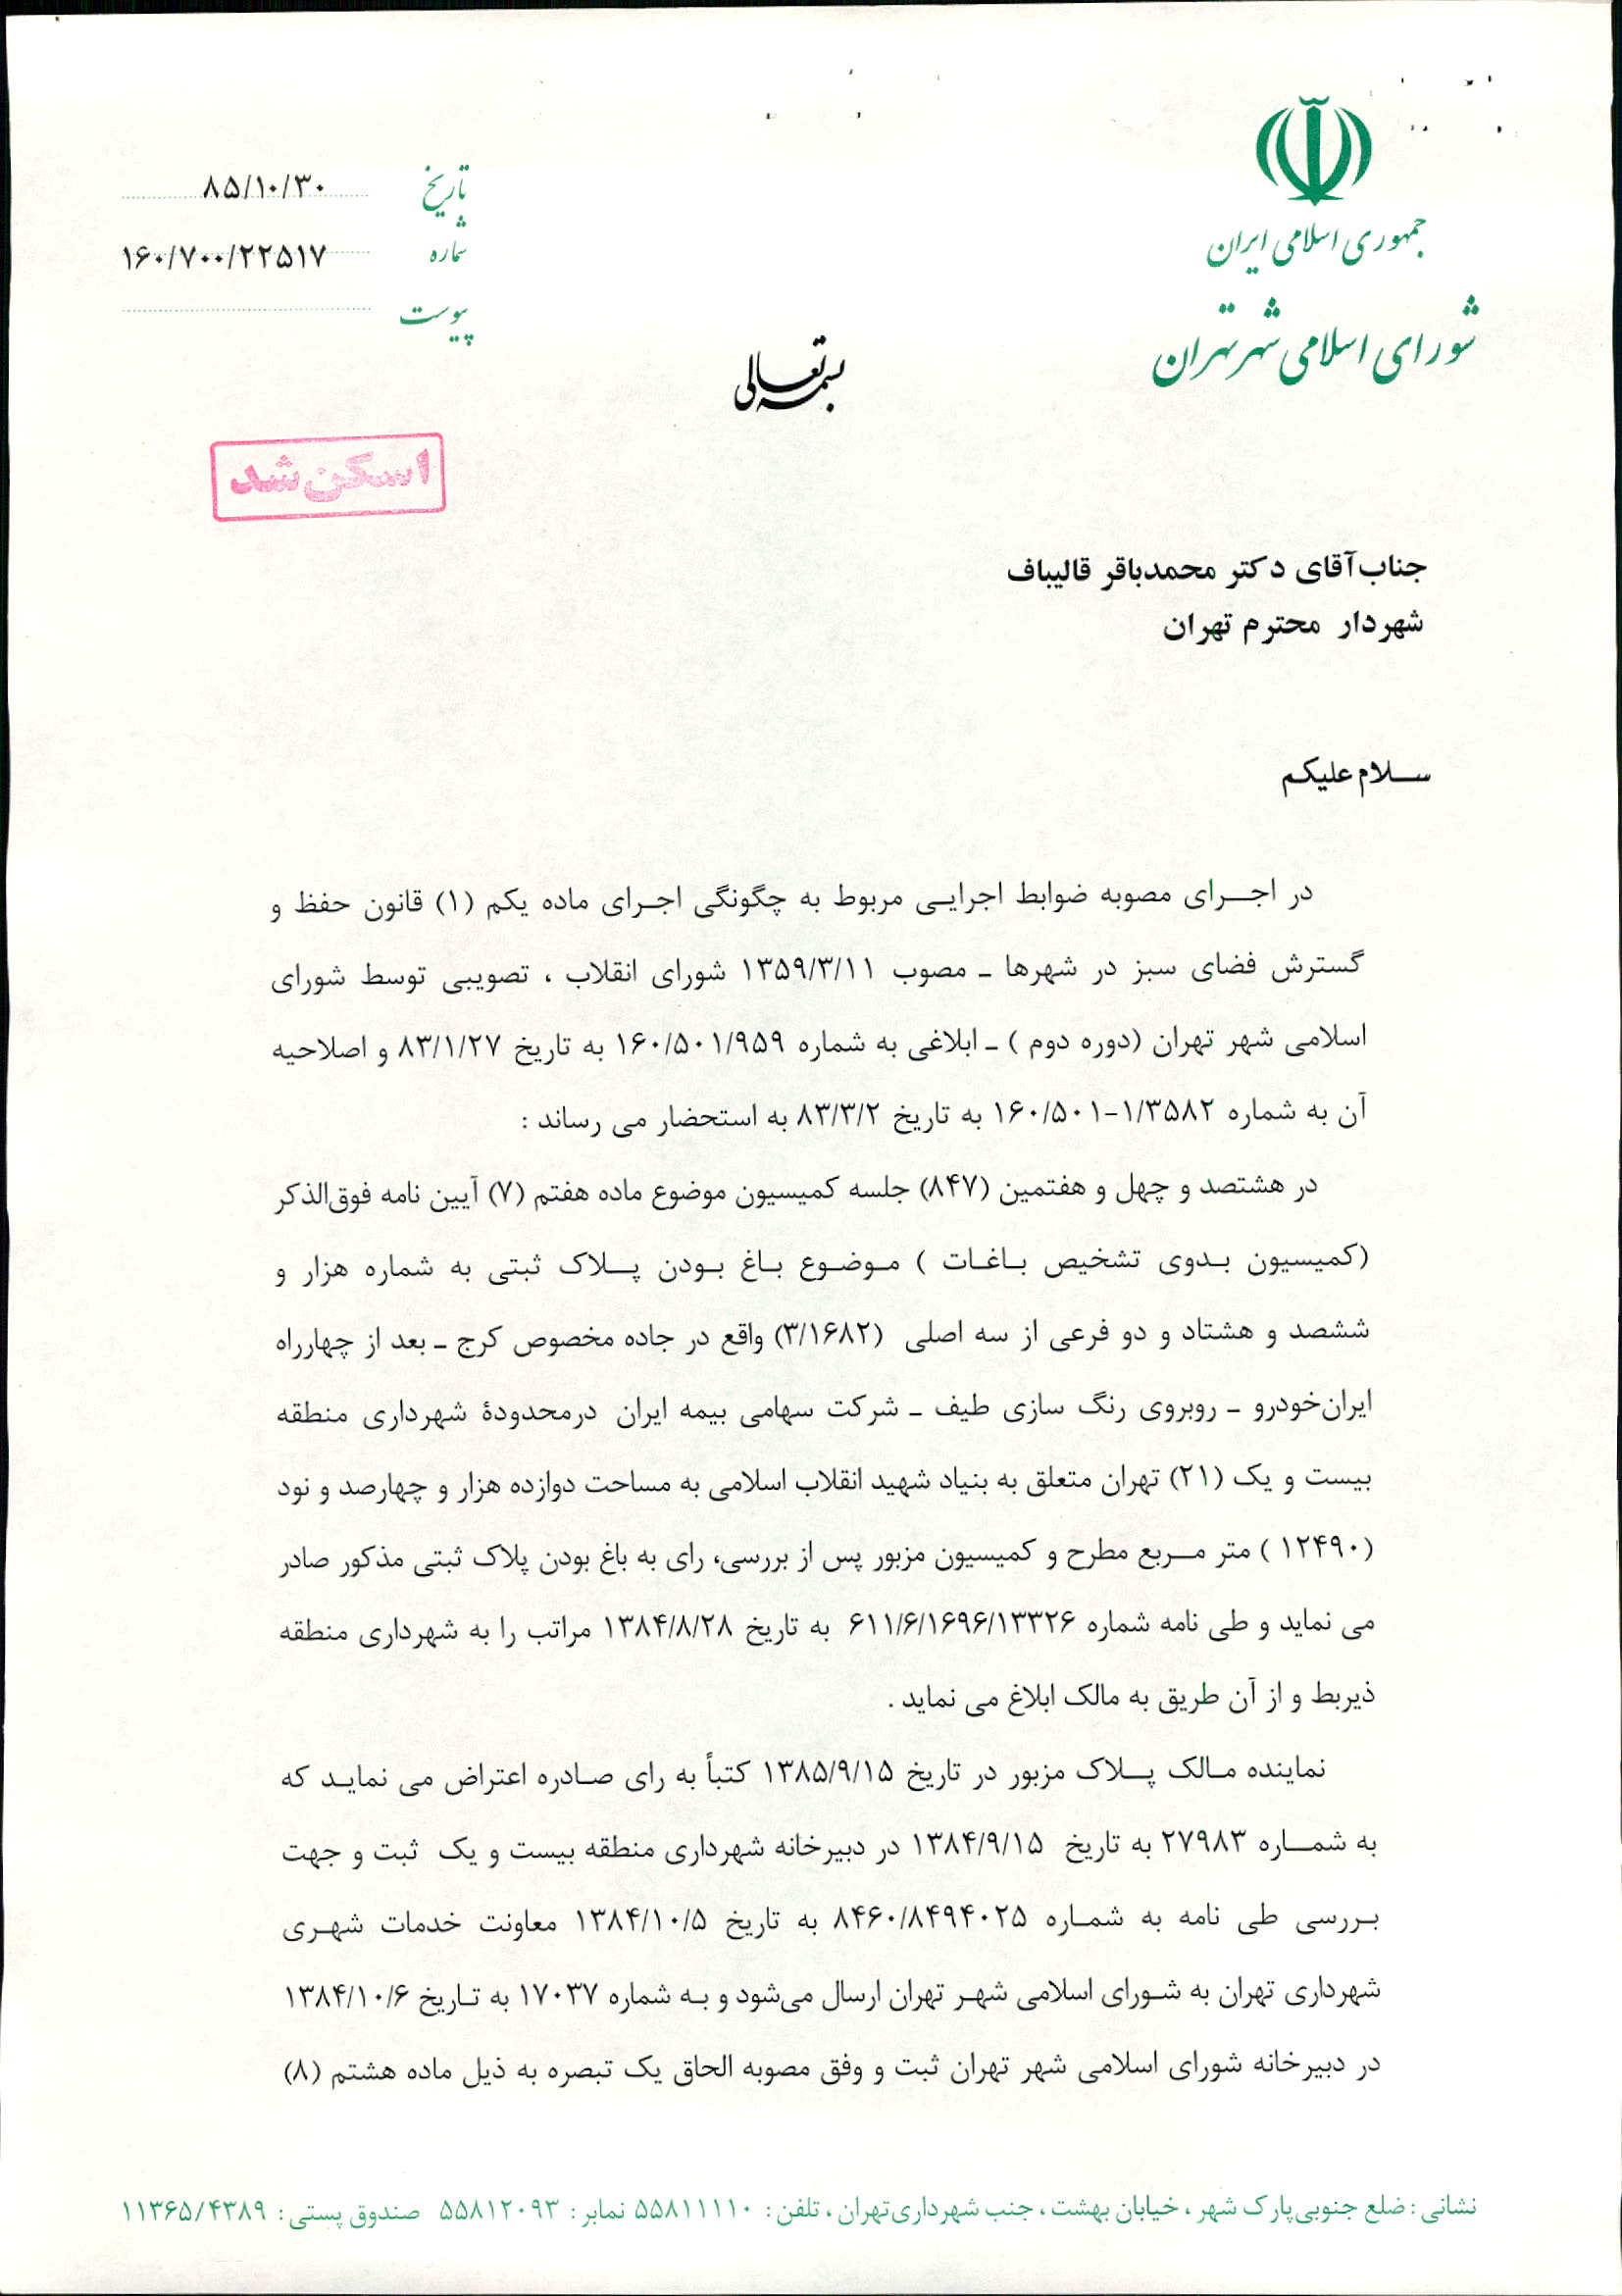 جمهوری اسلامی ایران
شورای اسلامی شهر تهران
تاریخ ۸۵/۱۰/۳۰
شماره ۱۶۰/۷۰۰/۲۲۵۱۷
پیوست
بسمه تعالی
اسکن شد
جناب‌آقای دکتر محمدباقر قالیباف
شهردار محترم تهران
سلام علیکم
در اجرای مصوبه ضوابط اجرایی مربوط به چگونگی اجرای ماده یکم (۱) قانون حفظ و
گسترش فضای سبز در شهرها ـ مصوب ۱۳۵۹/۳/۱۱ شورای انقلاب ، تصویبی توسط شورای
اسلامی شهر تهران (دوره دوم ) ـ ابلاغی به شماره ۱۶۰/۵۰۱/۹۵۹ به تاریخ ۸۳/۱/۲۷ و اصلاحیه
آن به شماره ۱۶۰/۵۰۱-۱/۳۵۸۲ به تاریخ ۸۳/۳/۲ به استحضار می رساند :
در هشتصد و چهل و هفتمین (۸۴۷) جلسه کمیسیون موضوع ماده هفتم (۷) آیین نامه فوق‌الذکر
(کمیسیون بدوی تشخیص باغات ) موضوع باغ بودن پلاک ثبتی به شماره هزار و
ششصد و هشتاد و دو فرعی از سه اصلی (۳/۱۶۸۲) واقع در جاده مخصوص کرج ـ بعد از چهارراه
ایران‌خودرو ـ روبروی رنگ سازی طیف ـ شرکت سهامی بیمه ایران درمحدودۀ شهرداری منطقه
بیست و یک (۲۱) تهران متعلق به بنیاد شهید انقلاب اسلامی به مساحت دوازده هزار و چهارصد و نود
(۱۲۴۹۰ ) متر مربع مطرح و کمیسیون مزبور پس از بررسی، رای به باغ بودن پلاک ثبتی مذکور صادر
می نماید و طی نامه شماره ۶۱۱/۶/۱۶۹۶/۱۳۳۲۶ به تاریخ ۱۳۸۴/۸/۲۸ مراتب را به شهرداری منطقه
ذیربط و از آن طریق به مالک ابلاغ می نماید .
نماینده مالک پلاک مزبور در تاریخ ۱۳۸۵/۹/۱۵ کتباً به رای صادره اعتراض می نماید که
به شماره ۲۷۹۸۳ به تاریخ ۱۳۸۴/۹/۱۵ در دبیرخانه شهرداری منطقه بیست و یک ثبت و جهت
بررسی طی نامه به شماره ۸۴۶۰/۸۴۹۴۰۲۵ به تاریخ ۱۳۸۴/۱۰/۵ معاونت خدمات شهری
شهرداری تهران به شورای اسلامی شهر تهران ارسال می‌شود و به شماره ۱۷۰۳۷ به تاریخ ۱۳۸۴/۱۰/۶
در دبیرخانه شورای اسلامی شهر تهران ثبت و وفق مصوبه الحاق یک تبصره به ذیل ماده هشتم (۸)
نشانی : ضلع جنوبی‌پارک شهر ، خیابان بهشت ، جنب شهرداری‌تهران ، تلفن : ۵۵۸۱۱۱۱۰ نمابر : ۵۵۸۱۲۰۹۳ صندوق پستی : ۱۱۳۶۵/۴۳۸۹